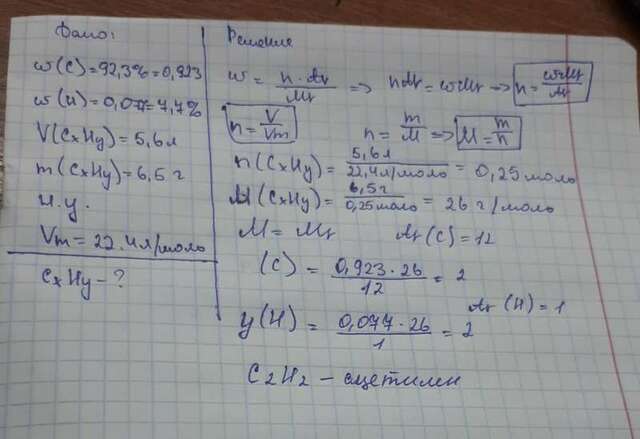 Дано:
w(C)=92,3%=0,923
w(H)=0,077=7,7%
V(CxHy)=5,6л
m(CxHy)=6,5г
н.у.
Vm=22.4л/моль
CxHy-?
Решение
w = n·Ar/Mr => nAr=wMr => n=wMr/Ar
n=V/Vm n=m/M => M=m/n
n(CxHy)=5,6л/22,4л/моль=0,25моль
M(CxHy)=6,5г/0,25моль=26г/моль
M=Mr Ar(C)=12
(C)=0,923·26/12=2
Ar(H)=1
y(H)=0,077·26/1=2
C2H2-ацетилен